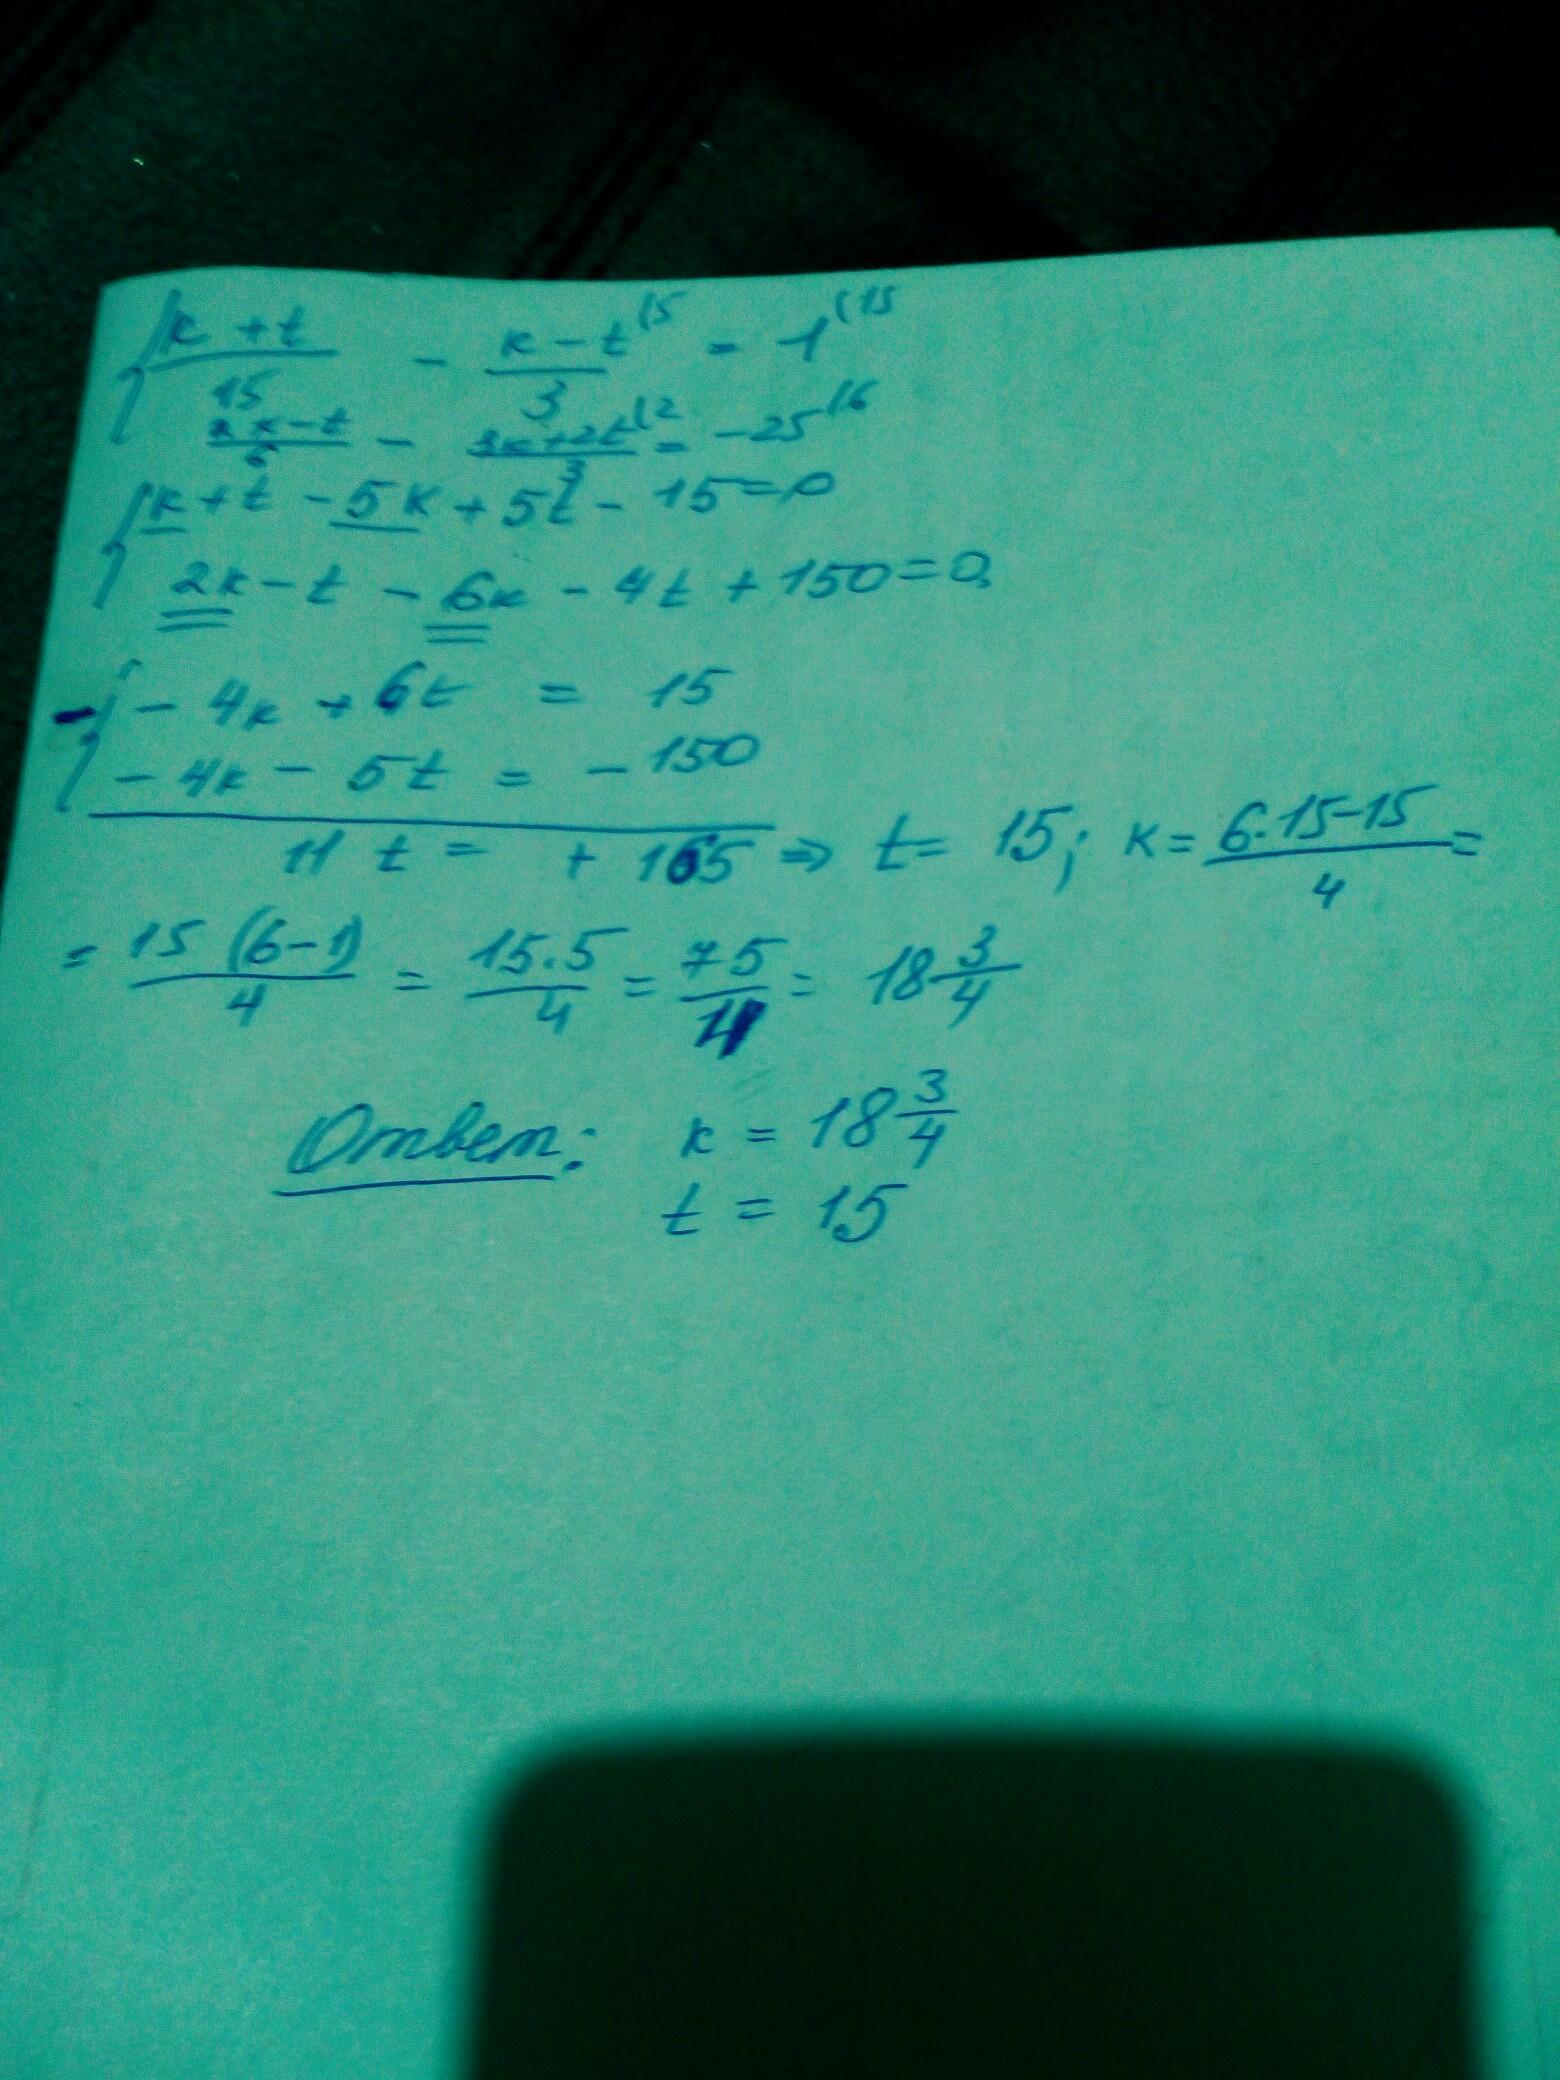 { (k + t)/15 - (k - t)/3 (5 = 1 (15
(2k - t)/6 - (3k + 2t)/3 (2 = -25 (6
{ k + t - 5k + 5t - 15 = 0
2k - t - 6k - 4t + 150 = 0
- { - 4k + 6t = 15
- 4k - 5t = - 150
11 t = + 165 ⇒ t = 15; k = (6·15-15)/4 =
= 15 (6-1)/4 = 15·5/4 = 75/4 = 18 3/4
Ответ: k = 18 3/4
t = 15